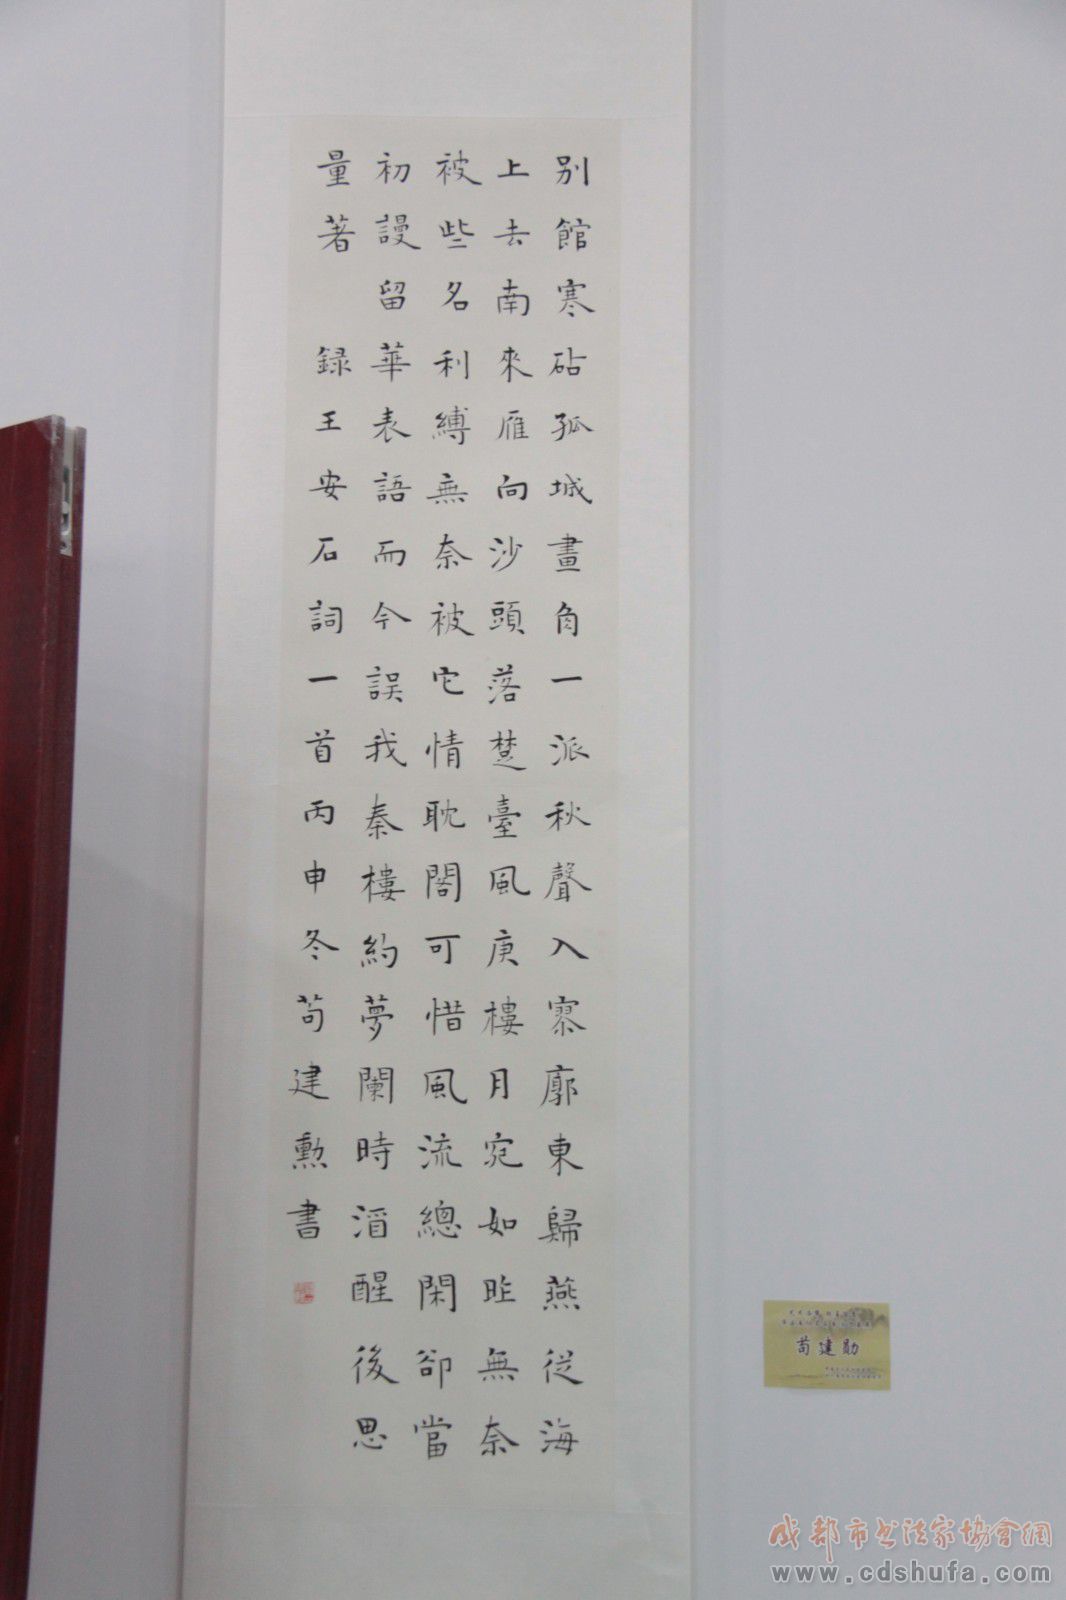 别館寒砧孤城畫角一派秋聲入寥廓東歸燕從海
上去南來雁向沙頭落楚臺風庚樓月宛如昨無奈
被些名利縛無奈被它情耽閣可惜風流總閑卻當
初謾留華表語而今誤我秦樓約夢闌時酒醒後思
量著 録王安石詞一首丙申冬苟建勲書
苟建勋
成都市书法家协会网
www.cdshufa.com